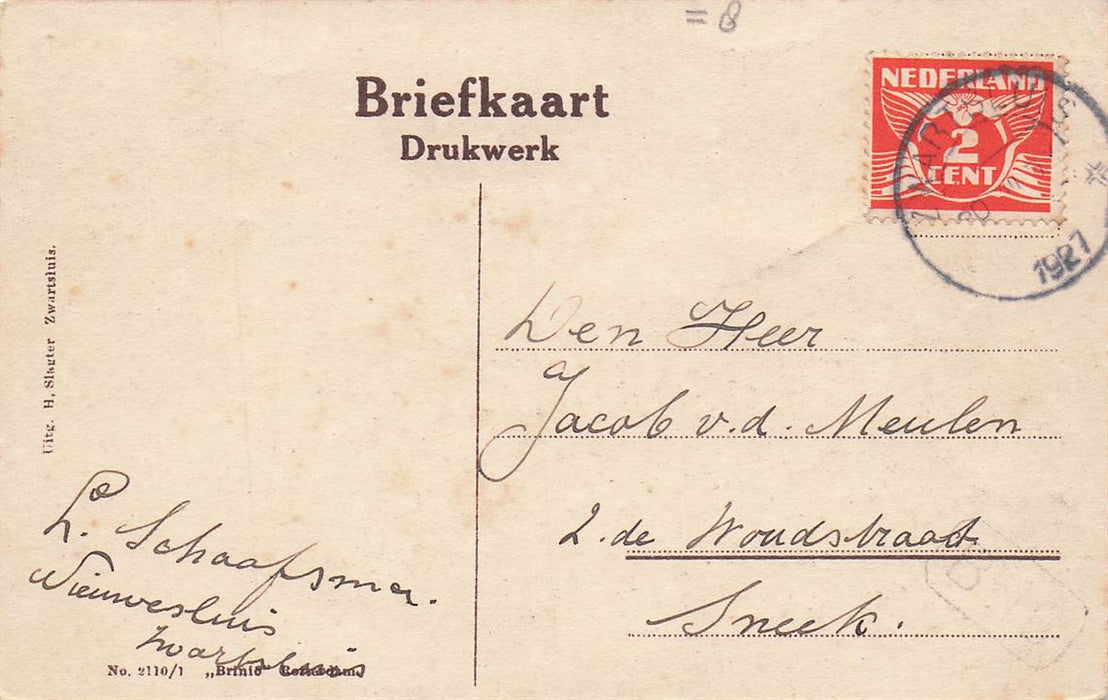 = 8
Briefkaart
Drukwerk
NEDERLAND
2
CENT
ZWARTSLUIS
1927
Uitg. H. Slagter Zwartsluis.
Den Heer
Jacob v.d. Meulen
2.de Woudstraat
Sneek.
L. Schaafsma.
Nieuwesluis
Zwartsluis
No. 2110/1 „Brinio" Rotterdam.